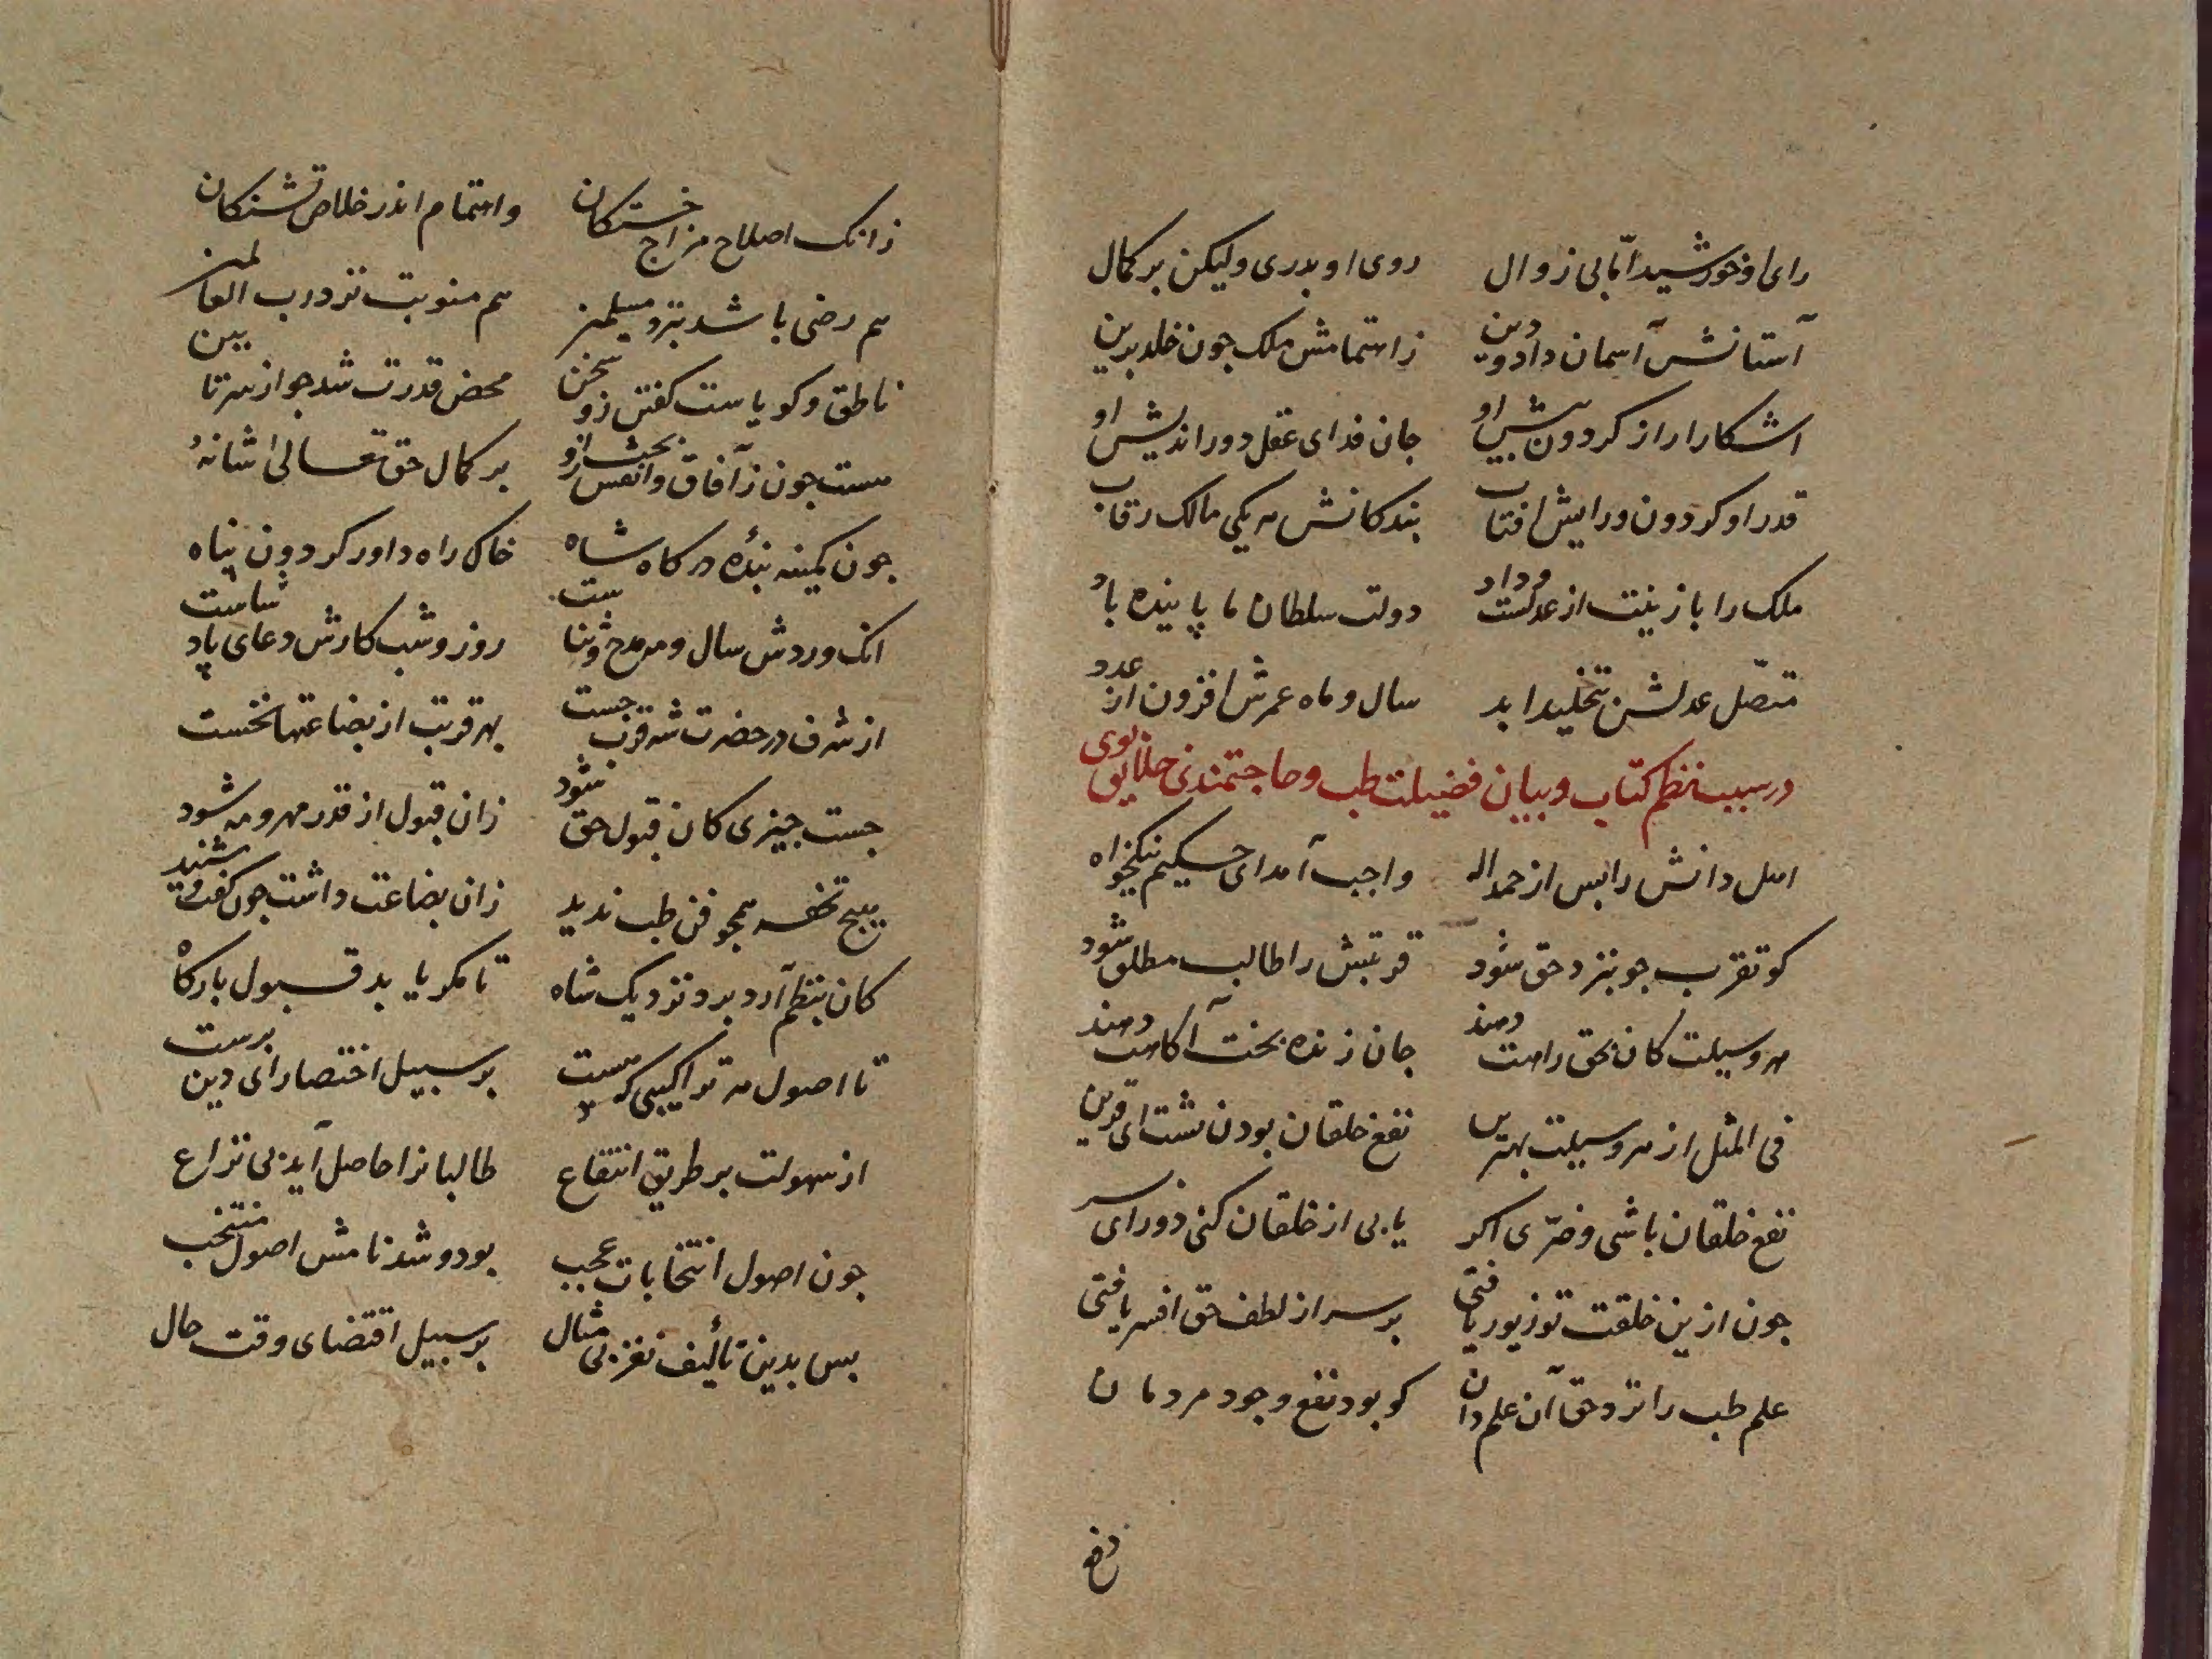 رای او خورشید امّا بی زوال روی او بدری ولیکن بر کمال
آستانش آسمان داد و دین ز اهتمامش ملک جون خلد برین
اشکارا راز کردون بیش او جان فدای عقل دور اندیش او
قدر او کردون و رایش افتاب بندکانش هر یکی مالک رقاب
ملک را با زینت از عدلست و داد دولت سلطان ما پاینده باد
متصّل عدلش بتخلید ابد سال و ماه عمرش افزون از عدد
در سبب نظم کتاب و بیان فضیلت طب و حاجتمندی خلایق بوی
اهل دانش را بس از حمد اله واجب آمد ای حکیم نیکخواه
کو تقرب جو بنزد حق شود قربتش را طالب مطلق شود
هر وسیلت کان بحق راهت دهند جان زنده بخت آکاهت دهند
فی المثل از هر وسیلت بهترین نفع خلقان بودن تست ای قرین
نفع خلقان باشی و ضرّی اکر یابی از خلقان کنی زو رای سر
جون ازین خلقت تو زیور یافتی بر سر از لطف حق افسر یافتی
علم طب را نزد حق آن علم دان کو بود نفع وجود مردمان
زانک اصلاح مزاج خستکان و اهتمام اندر خلاص تشنکان
هم رضی باشد بنزد مسلمین هم مثوبت نزد رب العالمین
ناطق و کویاست کفتن زو سخن محض قدرت شد جو از سر تا ببین
هست جون ز آفاق و انفس بحث ازو بر کمال حق تعالی شانهُ
جون کمینه بندهٔ درکاه شاه خاک راه داور کردون پناه
انک وردش سال و مه مدح و ثناست روز و شب کارش دعای پادشاست
از شرف در حضرت شه قرب جست بهر قربت از بضاعتها نخست
جست جیزی کان قبول حق شود زان قبول از قدر مهر و مه شود
هیج تحفه همجو فن طب ندید زان بضاعت داشت جون کفت و شنید
کان بنظم آرد برد نزدیک شاه تا مکر یابد قبول بارکاه
تا اصول هر ترکیبی که هست بر سبیل اختصار ای دین برست
از سهولت بر طریق انتفاع طالبانرا حاصل آید بی نزاع
جون اصول انتخابات عجب بود و شد نامش اصول منتخب
بس بدین تألیف نغز بی مثال بر سبیل اقتضای وقت حال